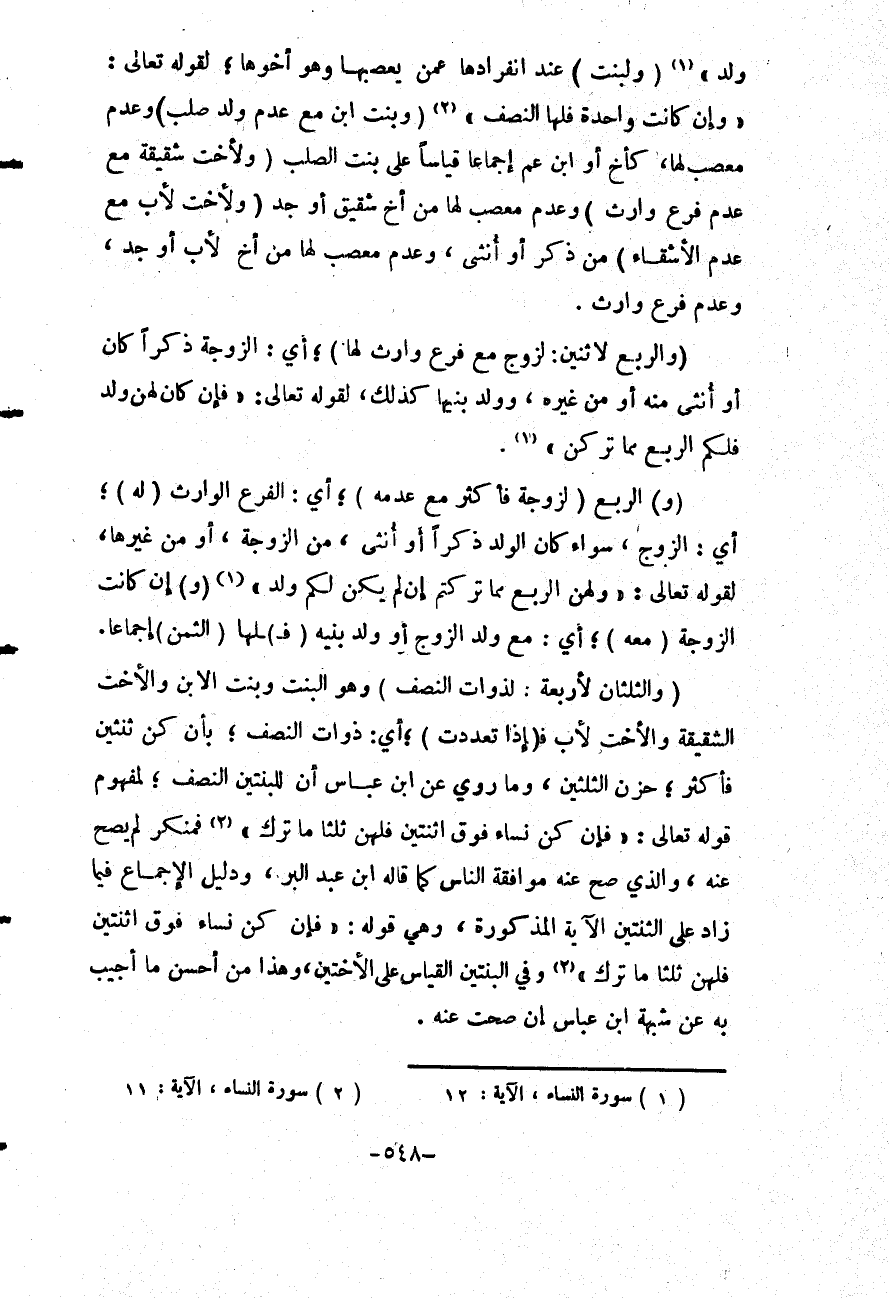 ولد » (١) ( ولبنت ) عند انفرادها عمن يعصبها وهو أخوها ؛ لقوله تعالى :
« وإن كانت واحدة فلها النصف » (٢) ( وبنت ابن مع عدم ولد صلب) وعدم
معصب لها، كأخ أو ابن عم إجماعا قياساً على بنت الصلب ( ولأخت شقيقة مع
عدم فرع وارث ) وعدم معصب لها من أخ شقيق أو جد ( ولأخت لأب مع
عدم الأشقاء ) من ذكر أو أُنثى ، وعدم معصب لها من أخ لأب أو جد ،
وعدم فرع وارث .
(والربع لاثنين: لزوج مع فرع وارث لها ) ؛ أي : الزوجة ذكراً كان
أو أُنثى منه أو من غيره ، وولد بنيها كذلك، لقوله تعالى: « فإن كان لهن ولد
فلكم الربع مما تركن » (١) .
(و) الربع ( لزوجة فأكثر مع عدمه ) ؛ أي : الفرع الوارث ( له ) ؛
أي : الزوج ، سواء كان الولد ذكراً أو أُنثى ، من الزوجة ، أو من غيرها،
لقوله تعالى : « ولهن الربع مما تركتم إن لم يكن لكم ولد » (١) (و) إن كانت
الزوجة ( معه ) ؛ أي : مع ولد الزوج أو ولد بنيه ( فـ)ـلها ( الثمن) إجماعا.
( والثلثان لأربعة : لذوات النصف ) وهو البنت وبنت الابن والأخت
الشقيقة والأخت لأب فـ(إذا تعددت ) ؛أي: ذوات النصف ؛ بأن كن ثنتين
فأكثر ؛ حزن الثلثين ، وما روي عن ابن عباس أن للبنتين النصف ؛ لمفهوم
قوله تعالى : « فإن كن نساء فوق اثنتين فلهن ثلثا ما ترك » (٢) فمنكر لم يصح
عنه ، والذي صح عنه موافقة الناس كما قاله ابن عبد البر ، ودليل الإجماع فيما
زاد على الثنتين الآية المذكورة ، وهي قوله : « فإن كن نساء فوق اثنتين
فلهن ثلثا ما ترك »(٢) وفي البنتين القياس على الأختين، وهذا من أحسن ما أجيب
به عن شبهة ابن عباس إن صحت عنه .
( ١ ) سورة النساء ، الآية : ١٢ ( ٢ ) سورة النساء ، الآية : ١١
-٥٤٨-